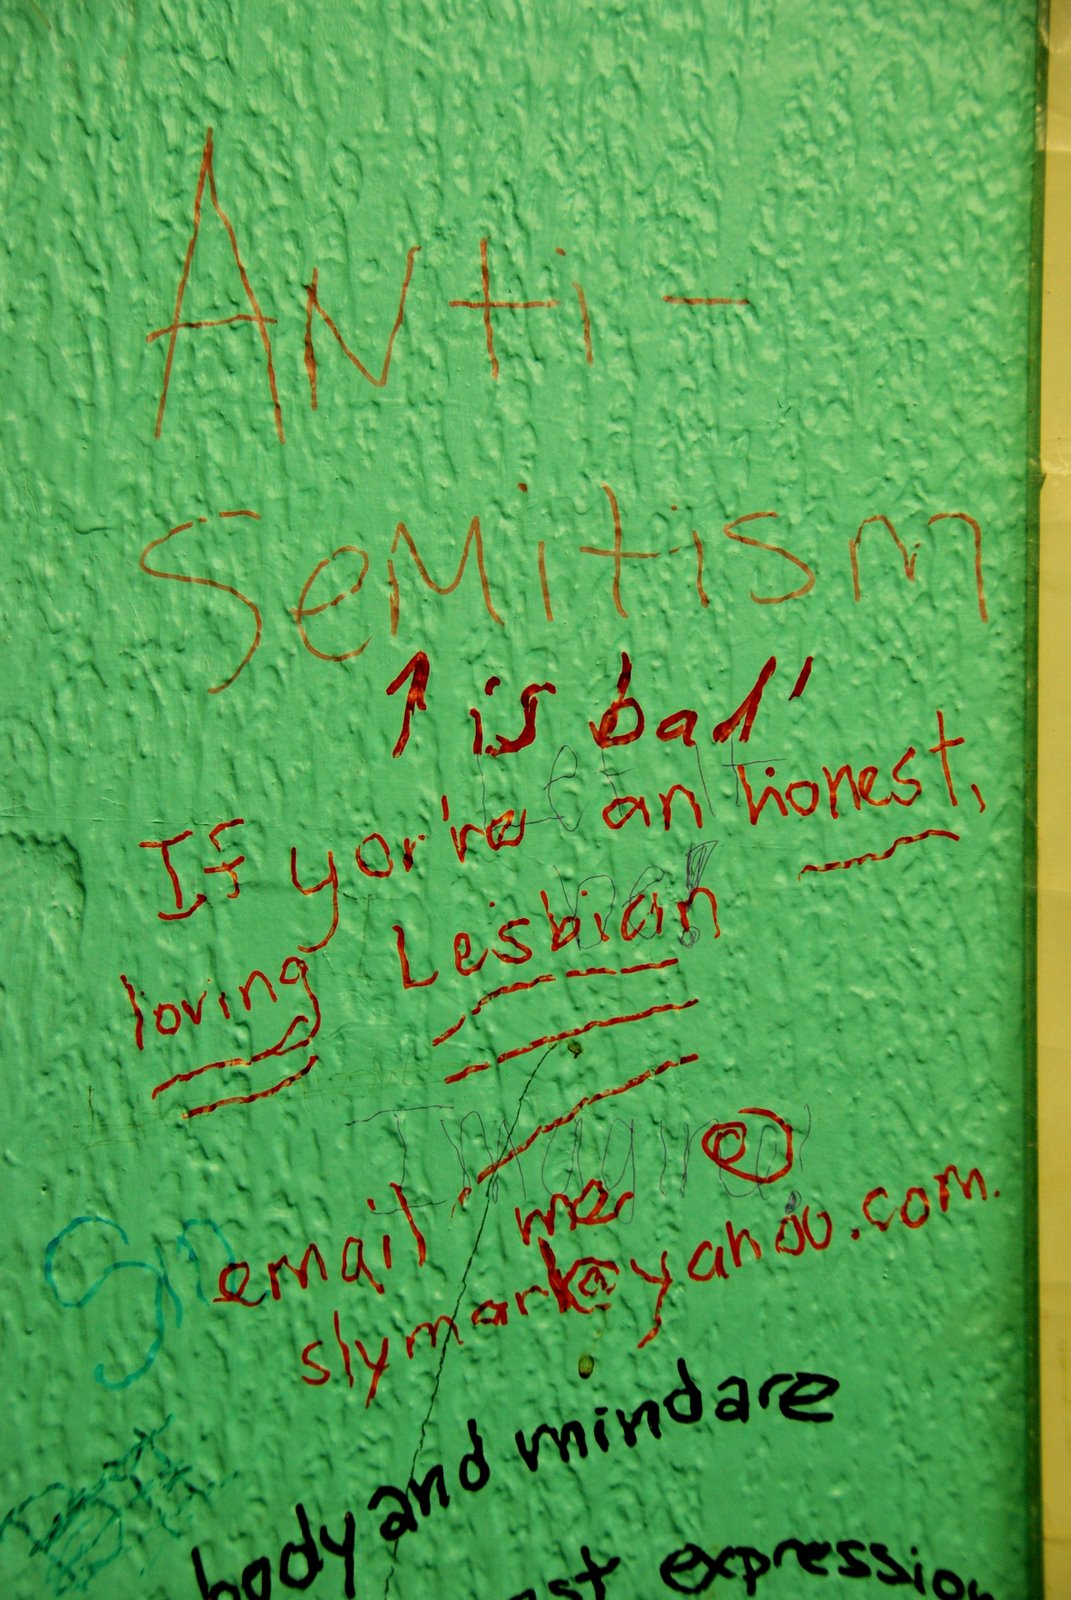 Anti-
Semitism
↑ is bad'
Let it
be!
If you're an honest,
loving Lesbian
Imagine
email me @
slymark@yahoo.com.
body and mind are
expression